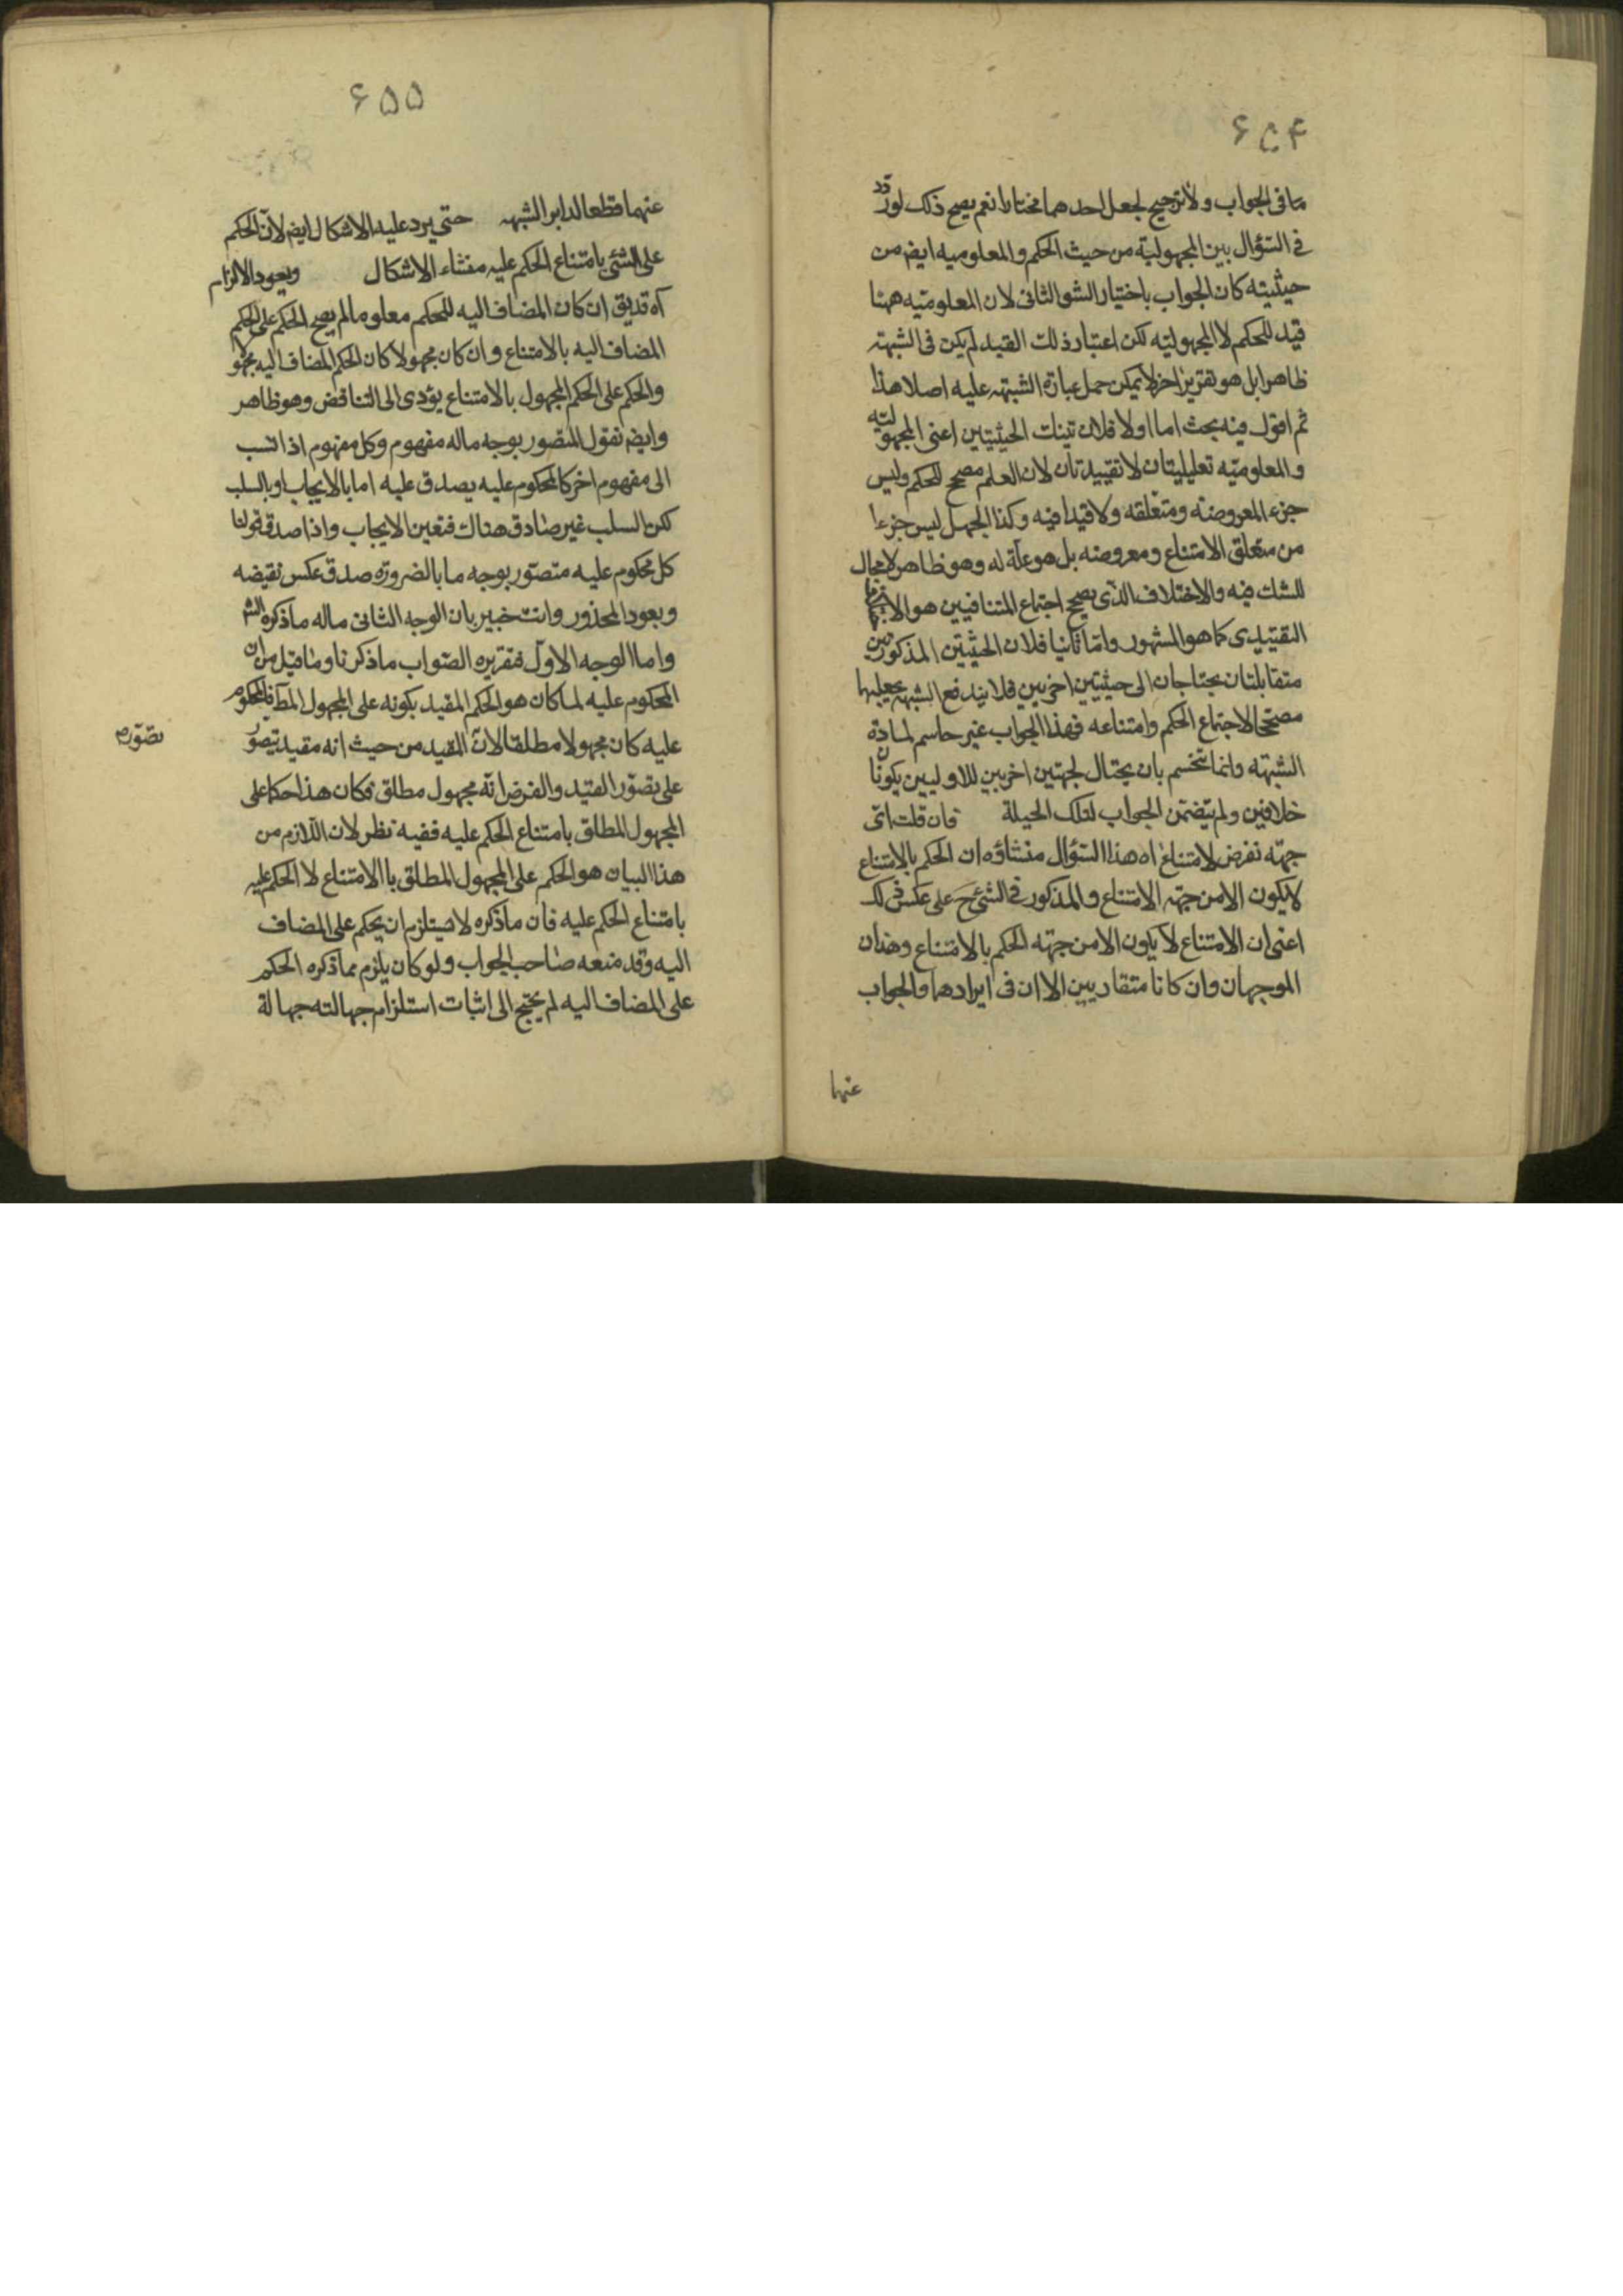 ۶۵۴
ما فى الجواب ولا ترجيح لجعل احدهما مختارا نعم يصح ذلك لو ردّد
فى السّؤال بين المجهوليّة من حيث الحكم والمعلوميه ايضا من
حيثيته كان الجواب باختيار الشق الثانى لان المعلوميّه ههنا
قيد للحكم لا المجهوليّه لكن اعتبار ذلك القيد لم يكن فى الشبهة
ظاهرا بل هو تقرير اخر لا يمكن حمل عبارة الشبهه عليه اصلا هذا
ثم اقول فيه بحث اما اولا فلان تينك الحيثيتين اعنى المجهوليّه
والمعلوميّه تعليليتان لا تقييديتان لان العلم مصحح للحكم وليس
جزء المعروضه ومتعلقه ولا قيدا فيه وكذا الجهل ليس جزءا
من متعلق الامتناع ومعروضه بل هو علّة له وهو ظاهر لا مجال
للشك فيه والاختلاف الذى يصحح اجتماع المتنافيين هو
التقييدى كما هو المشهور وامّا ثانيا فلان الحيثيتين المذكورتين
متقابلتان يحتاجان الى حيثيتين اخريين فلا يندفع الشبهه بجعلهما
مصححا لاجتماع الحكم وامتناعه فهذا الجواب غير حاسم لمادة
الشبهه وانما تنحسم بان يحتال لجهتين اخريين للاوليين يكونان
خلافين ولم يتضمن الجواب لتلك الحيلة فان قلت اىّ
جهته نفرض لامتناع اه هذا السّؤال منشاؤه ان الحكم بالامتناع
لا يكون الا من جهته الامتناع والمذكور فى الشئ ح على عكس ذلك
اعنى ان الامتناع لا يكون الا من جهته الحكم بالامتناع وهذان
الموجهان وان كانا متقاربين الا ان فى ايرادهما والجواب
عنها
۶۵۵
عنهما قطعا لدابر الشبهه حتى يرد عليه الاشكال ايضا لانّ الحكم
على الشئى بامتناع الحكم عليه منشاء الاشكال ويعود الالزام
آه قد يق ان كان المضاف اليه للحكم معلوما لم يصح الحكم على الحكم
المضاف اليه بالامتناع وان كان مجهولا كان الحكم المضاف اليه مجهولا
والحكم على الحكم المجهول بالامتناع يؤدى الى التناقض وهو ظاهر
وايضا نقول المتصور بوجه ماله مفهوم وكل مفهوم اذا نسب
الى مفهوم اخر كالمحكوم عليه يصدق عليه اما بالايجاب او بالسلب
لكن السلب غير صادق هناك فتعين الايجاب واذا صدق قولنا
كل محكوم عليه متصوّر بوجه ما بالضرورة صدق عكس نقيضه
ويعود المحذور وانت خبير بان الوجه الثانى ماله ما ذكره الش
واما الوجه الاوّل فتقريره الصّواب ما ذكرنا وما قيل من ان
المحكوم عليه لما كان هو الحكم المقيد بكونه على المجهول المط فالمحكوم
عليه كان مجهولا مطلقا لان المقيد من حيث انه مقيد يتصوّر
تصوّره
على تصوّر القيد والفرض انّه مجهول مطلق فكان هذا حكما على
المجهول المطلق بامتناع الحكم عليه ففيه نظر لان اللازم من
هذا البيان هو الحكم على المجهول المطلق باالامتناع لا الحكم عليه
بامتناع الحكم عليه فان ما ذكره لا يستلزم ان يحكم على المضاف
اليه وقد منعه صاحب الجواب ولو كان يلزم مما ذكره الحكم
على المضاف اليه لم يحتج الى اثبات استلزام جهالته جهالة